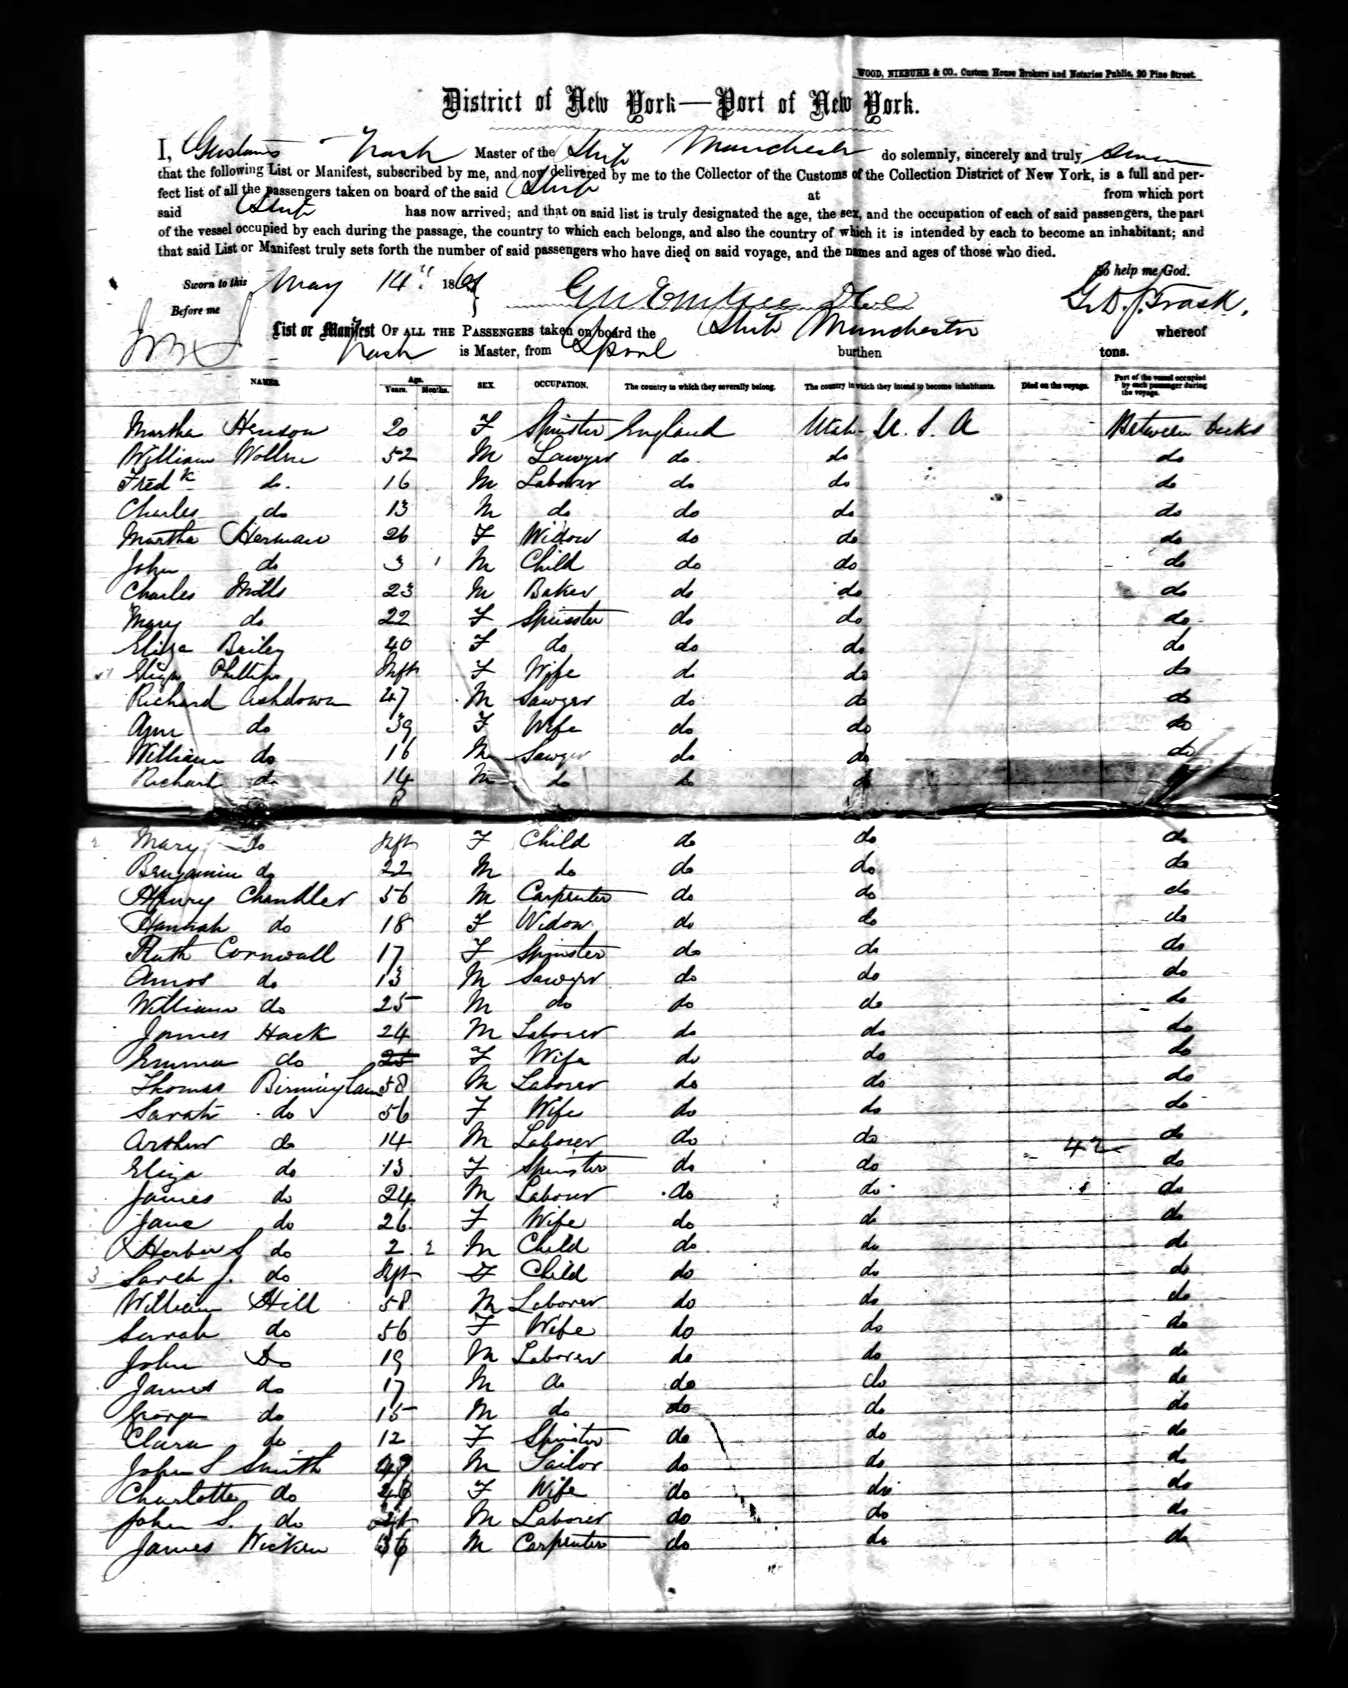 WOOD, NIEBUHR & CO., Custom House Brokers and Notaries Public, 90 Pine Street.
District of New York—Port of New York.
I, Gustavus Trask Master of the Ship Manchester do solemnly, sincerely and truly swear
that the following List or Manifest, subscribed by me, and now delivered by me to the Collector of the Customs of the Collection District of New York, is a full and per-
fect list of all the passengers taken on board of the said Ship at from which port
said Ship has now arrived; and that on said list is truly designated the age, the sex, and the occupation of each of said passengers, the part
of the vessel occupied by each during the passage, the country to which each belongs, and also the country of which it is intended by each to become an inhabitant; and
that said List or Manifest truly sets forth the number of said passengers who have died on said voyage, and the names and ages of those who died.
So help me God.
Sworn to this May 14 1861 G. D. S. Trask.
Before me
List or Manifest OF ALL THE PASSENGERS taken on board the Ship Manchester whereof
Trask is Master, from Lpool burthen tons.
NAMES. Age. Years. Months. SEX. OCCUPATION. The country to which they severally belong. The country in which they intend to become inhabitants. Died on the voyage. Part of the vessel occupied by each passenger during the voyage.
Martha Henson 20 F Spinster England Utah U. S. A Between decks
William 52 M Lawyer do do do
Fredk do. 16 M Labourer do do do
Charles do 13 M do do do do
Martha Herman 26 F Widow do do do
John do 3 M Child do do do
Charles Mills 23 M Baker do do do
Mary do 22 F Spinster do do do
Eliza Bailey 40 F do do do do
Eliza Phillips Inft F Wife do do do
Richard Ashdown 47 M Sawyer do do do
Ann do 39 F Wife do do do
William do 16 M Sawyer do do do
Richard do 14 M do do do
8
Mary do Inft F Child do do do
Benjamin do 22 M do do do do
Henry Chandler 56 M Carpenter do do do
Hannah do 18 F Widow do do do
Ruth Cornwall 17 F Spinster do do do
Amos do 13 M Sawyer do do do
William do 25 M do do do do
James Hack 24 M Laborer do do do
Emma do 25 F Wife do do do
Thomas Birmingham 58 M Laborer do do do
Sarah do 56 F Wife do do do
Arthur do 14 M Laborer do do do
42
Eliza do 13 F Spinster do do do
James do 24 M Labour do do do
Jane do 26 F Wife do do do
Herbert S do 2 2 M Child do do do
3 Sarah J. do Inft F Child do do do
William Hill 58 M Laborer do do do
Sarah do 56 F Wife do do do
John Do 19 M Laborer do do do
James do 17 M do do do do
George do 15 M do do do do
Clara do 12 F Spinster do do do
John S Smith M Tailor do do do
Charlotte do F Wife do do do
John S. do M Laborer do do do
James Wicken 36 M Carpenter do do do